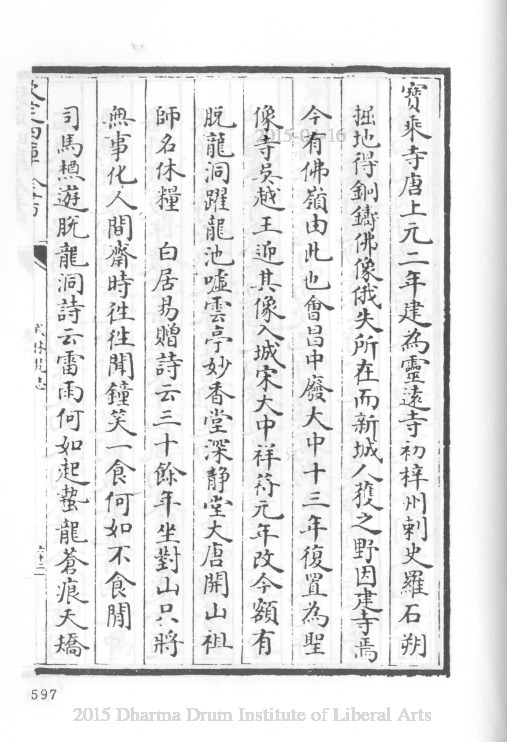 寶乘寺唐上元二年建為靈遠寺初梓州刺史羅石朔
掘地得銅鑄佛像俄失所在而新城人獲之野因建寺焉
今有佛嶺由此也會昌中廢大中十三年復置為聖
像寺吳越王迎其像入城宋大中祥符元年改今額有
脫龍洞躍龍池噓雲亭妙香堂深靜堂大唐開山祖
師名休糧 白居易贈詩云三十餘年坐對山只將
無事化人間齋時徃徃聞鐘笑一食何如不食閒
司馬樵遊脫龍洞詩云雷雨何如起蟄龍蒼痕夭矯
欽定四庫全書
武林梵志
597
2015 Dharma Drum Institute of Liberal Arts